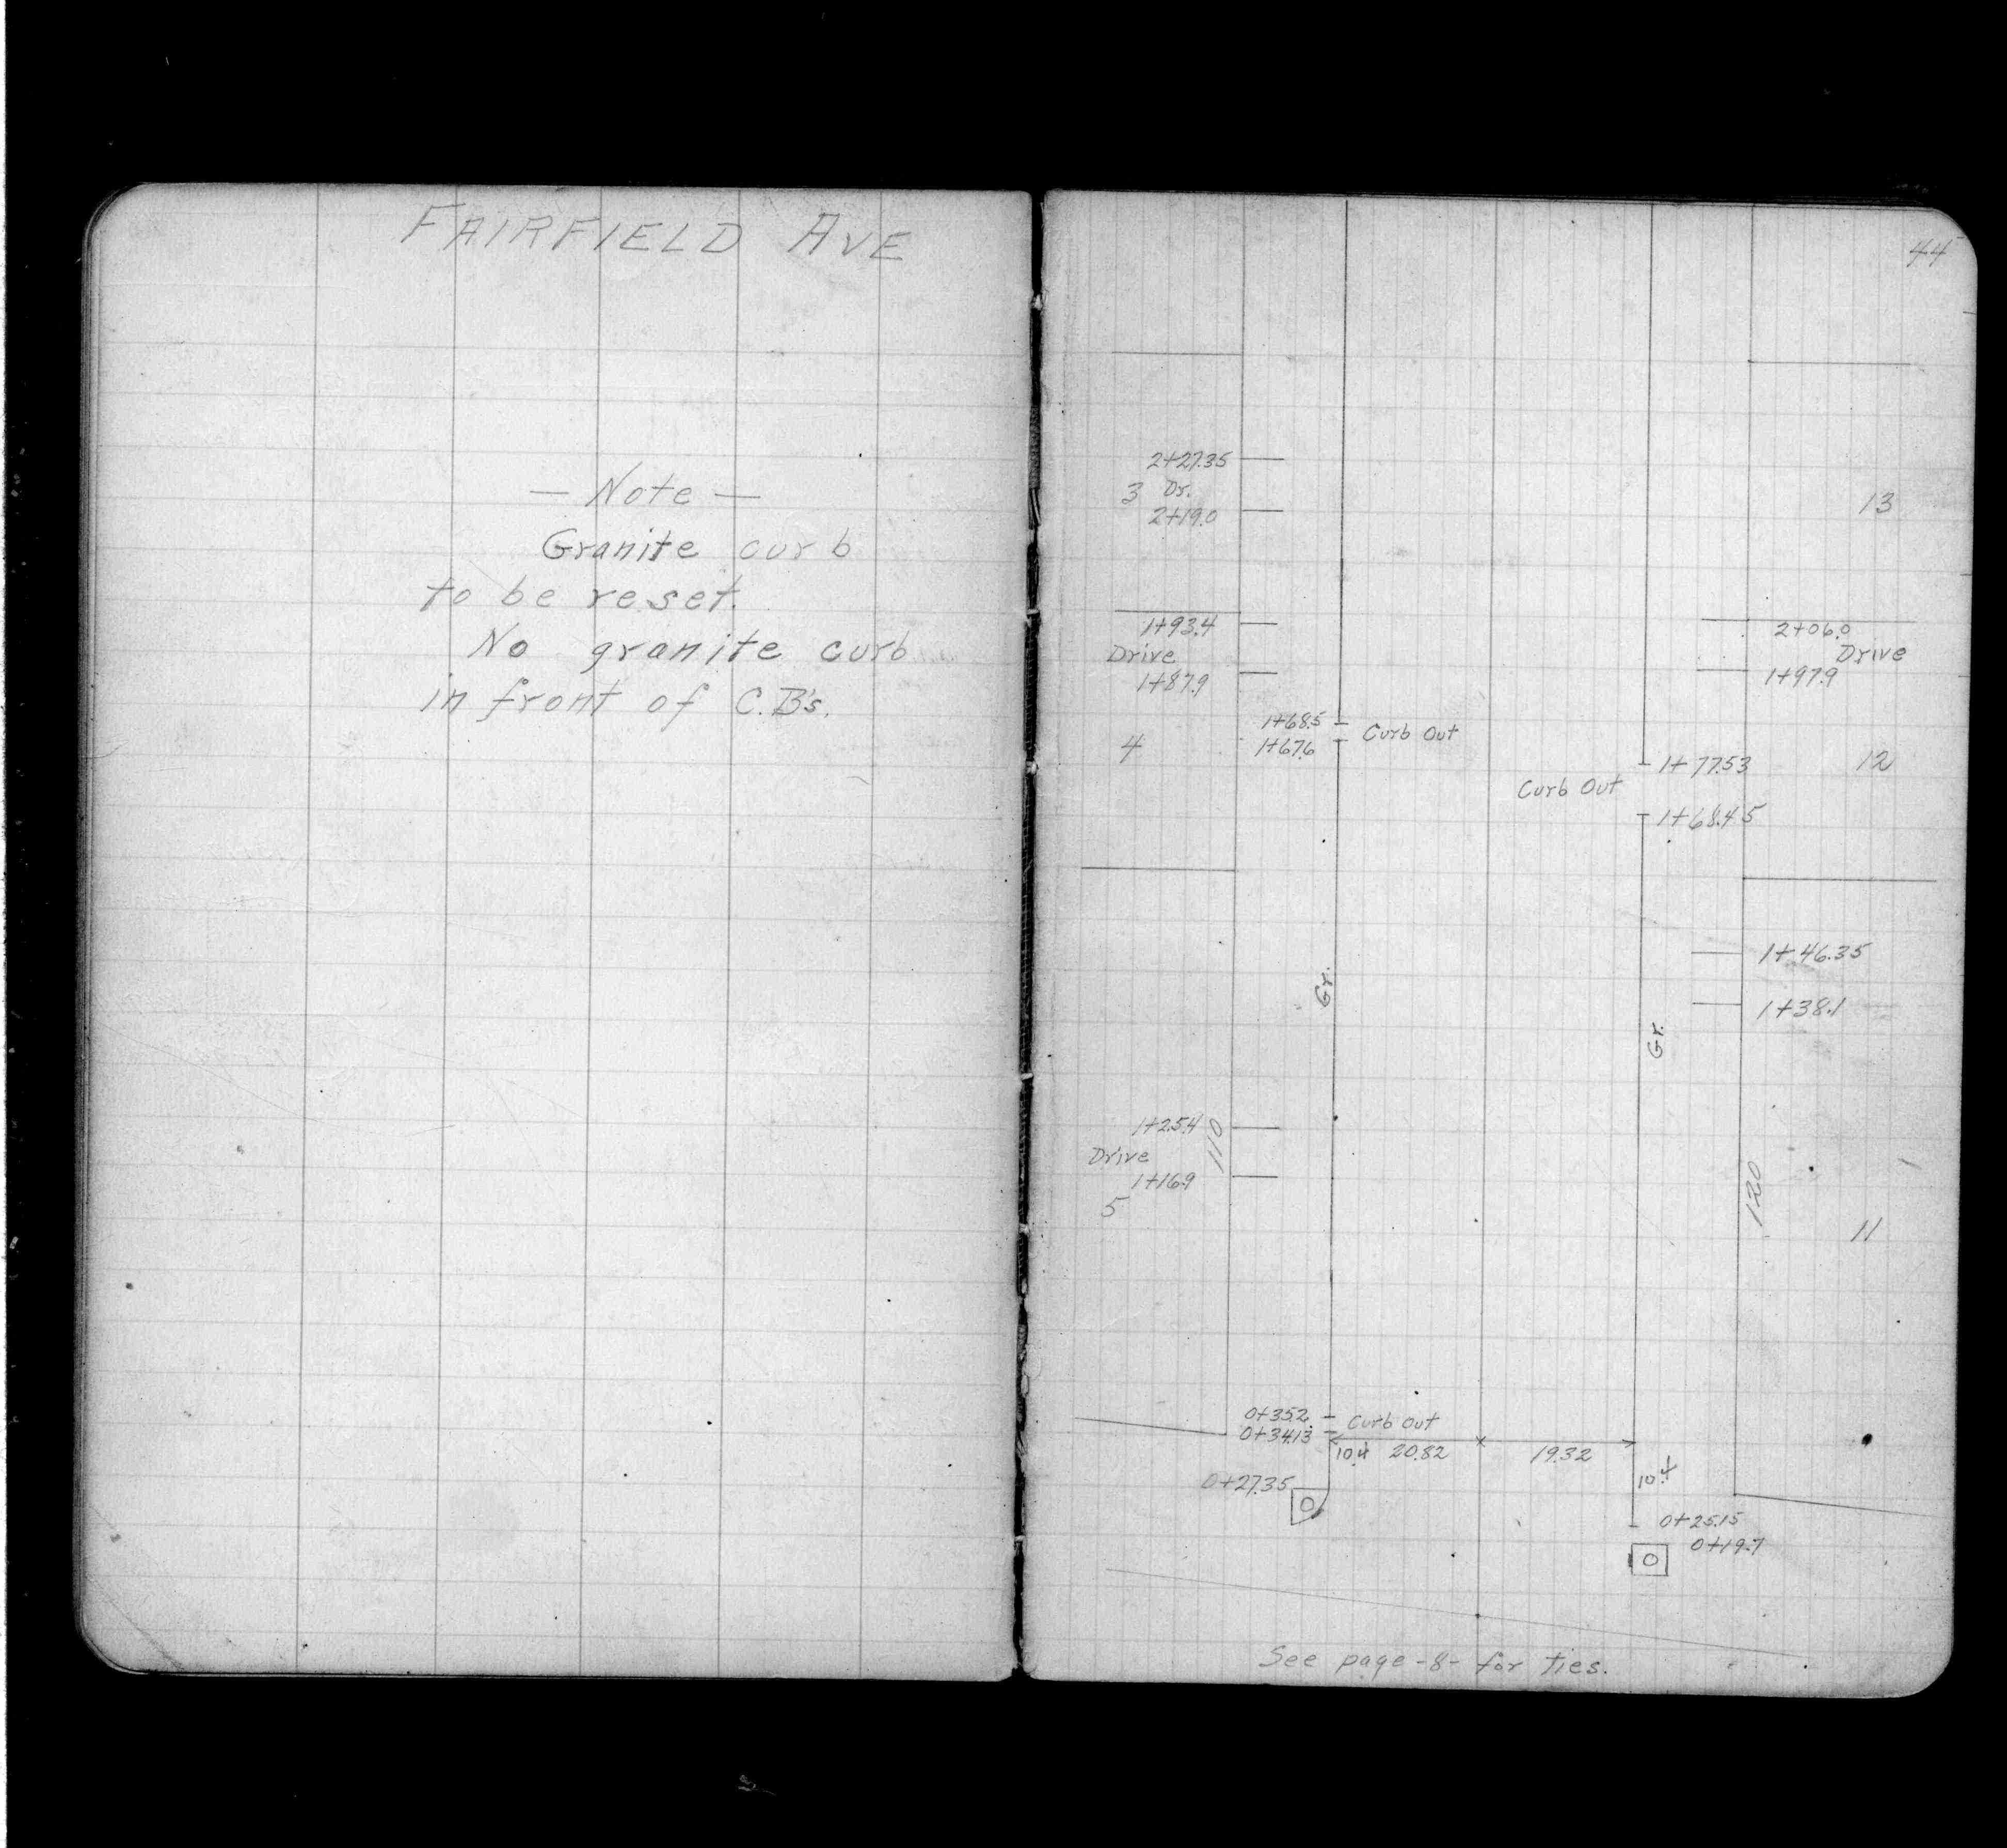 FAIRFIELD AVE
— Note —
Granite curb
to be reset.
No granite curb
in front of C.B's.
44
2+27.35
3 Dr.
2+19.0
13
1+93.4
Drive
1+87.9
2+06.0
Drive
1+97.9
1+68.5
1+67.6
Curb Out
4
1+77.53
12
Curb Out
1+68.45
1+46.35
Gr.
1+38.1
Gr.
1+25.4
110
Drive
1+16.9
5
120
11
0+35.2
Curb Out
0+34.13
10.4 20.82
19.32
10.4
0+27.35
0+25.15
0+19.7
See page -8- for ties.